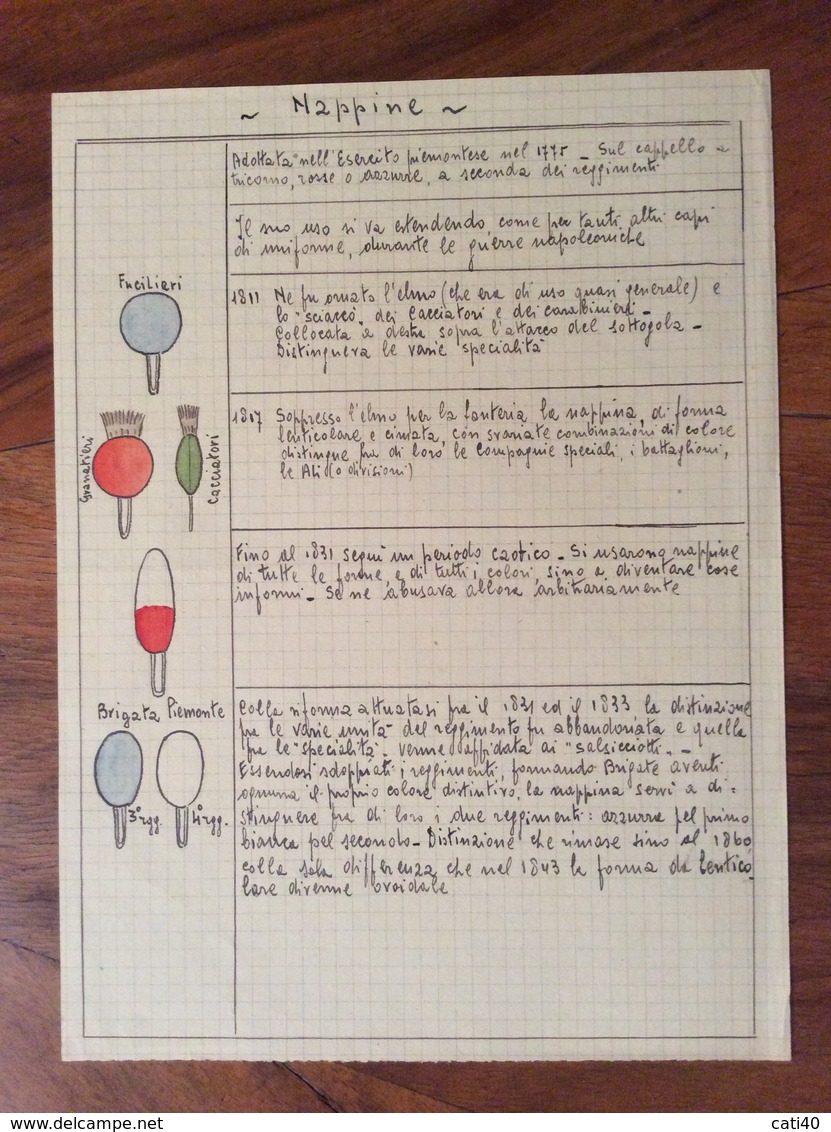 ~ Nappine ~
Adottata nell'Esercito piemontese nel 1775 _ Sul cappello a
tricorno, rosse o azzurre, a seconda dei reggimenti
Il suo uso si va estendendo, come per tanti altri capi
di uniforme, durante le guerre napoleoniche
Fucilieri
1811 Ne fu ornato l'elmo (che era di uso quasi generale) e
lo "sciaccò" dei Cacciatori e dei carabinieri _
Collocata a destra sopra l'attacco del sottogola _
Distingueva le varie "specialità"
Granatieri
Cacciatori
1817 Soppresso l'elmo per la fanteria, la nappina, di forma
lenticolare e cimata, con svariate combinazioni di colore
distingue fra di loro le Compagnie speciali, i battaglioni,
le Ali (o divisioni)
Fino al 1831 seguì un periodo caotico _ Si usarono nappine
di tutte le forme, e di tutti i colori, sino a diventare cose
informi _ Se ne abusava allora arbitrariamente
Brigata Piemonte
3° rgg.
4° rgg.
Colla riforma attuatasi fra il 1831 ed il 1833 la distinzione
fra le varie unità del reggimento fu abbandonata e quella
fra le "specialità" venne affidata ai "salsicciotti" _
Essendosi sdoppiati i reggimenti, formando Brigate aventi
ognuna il proprio colore distintivo, la nappina servì a di=
stinguere fra di loro i due reggimenti: azzurra pel primo
bianca pel secondo _ Distinzione che rimase sino al 1860
colla sola differenza che nel 1843 la forma da lentico
lare divenne ovoidale
www.delcampe.net
cati40